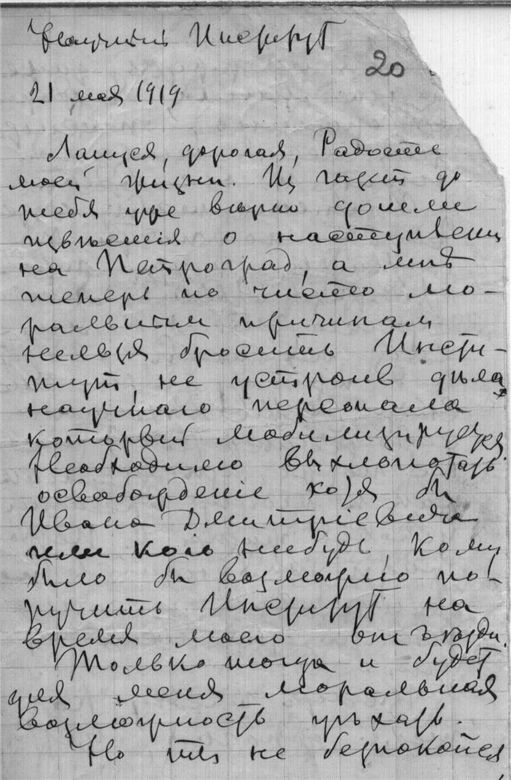 Научный Институт
20
21 мая 1919
Лапуся, дорогая, Радость
моей жизни. Из газет до
тебя уже верно дошли
извѣстія о наступлении
на Петроград, а мнѣ
теперь по чисто мо-
ральным причинам
нельзя бросить Инсти-
тут, не устроив дѣла
научнаго персонала
который мобилизируется.
Необходимо выхлопотать
освобождение хотя бы
Ивана Дмитріевича
или кого нибудь, кому
было бы возможно по-
ручить Институт на
время моего отъѣзда.
Только тогда и будет
для меня моральная
возможность уѣхать.
Но ты не безпокойся